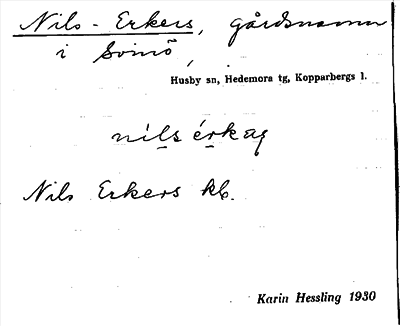 Nils-Erkers, gårdsnamn
i Svinö,
Husby sn, Hedemora tg, Kopparbergs l.
nils érkaʂ
Nils Erkers kb.
Karin Hessling 1930